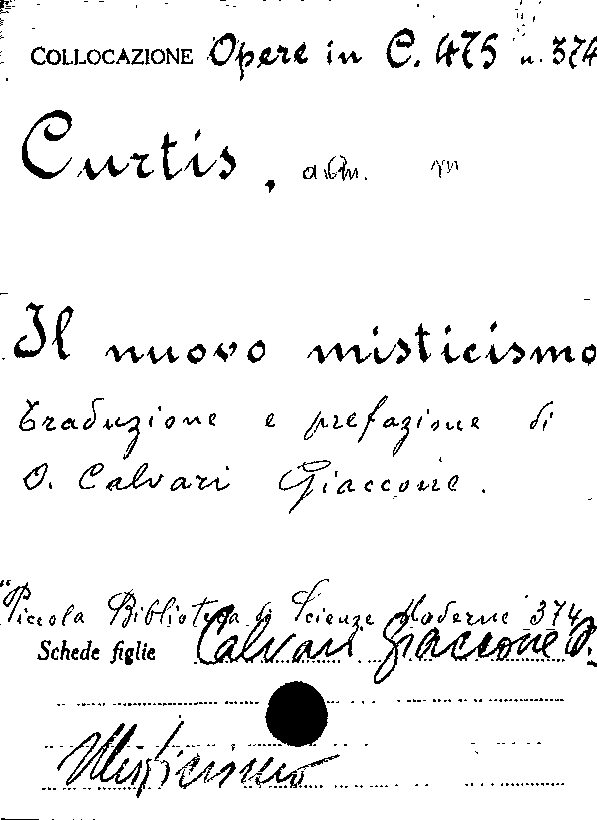 COLLOCAZIONE Opere in C. 475 n. 374
Curtis, m
Il nuovo misticismo
Traduzione e prefazione di
O. Calvari Giaccone.
"Piccola Biblioteca di Scienze Moderne 374
Schede figlie Calvari Giaccone O.
Misticismo